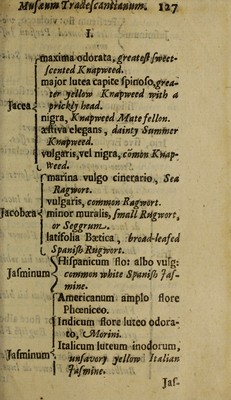 Musæum Tradescantianum. 127
I.
maxima odorata, greatest sweet-
scented Knapweed.
major lutea capite spinoso, grea-
ter yellow Knapweed with a
prickly head.
Jacea
nigra, Knapweed Mute fellon.
æstiva elegans, dainty Summer
Knapweed.
vulgaris, vel nigra, cōmon Knap-
weed.
marina vulgo cinerario, Sea
Ragwort.
vulgaris, common Ragwort.
Jacobæa
minor muralis, small Rugwort,
or Seggrum.
latifolia Bætica, bread-leafed
Spanish Rugwort.
Hispanicum flo: albo vulg:
Jasminum
common white Spanish Jas-
mine.
Americanum amplo flore
Phœniceo.
Indicum flore luteo odora-
to, Morini.
Jasminum
Italicum luteum inodorum,
unsavory yellow Italian
Jasmine.
Jas-